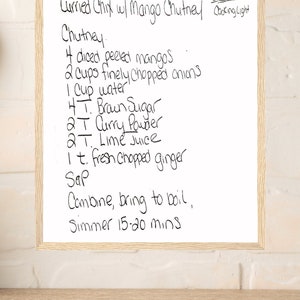 Curried Chix w/ Mango Chutney
Cooking Light
Chutney
4 diced peeled mangos
2 cups finely chopped onions
1 cup water
4 T. Brown Sugar
2 T. Curry Powder
2 T. Lime juice
1 t. fresh chopped ginger
S&P
Combine, bring to boil,
Simmer 15-20 mins